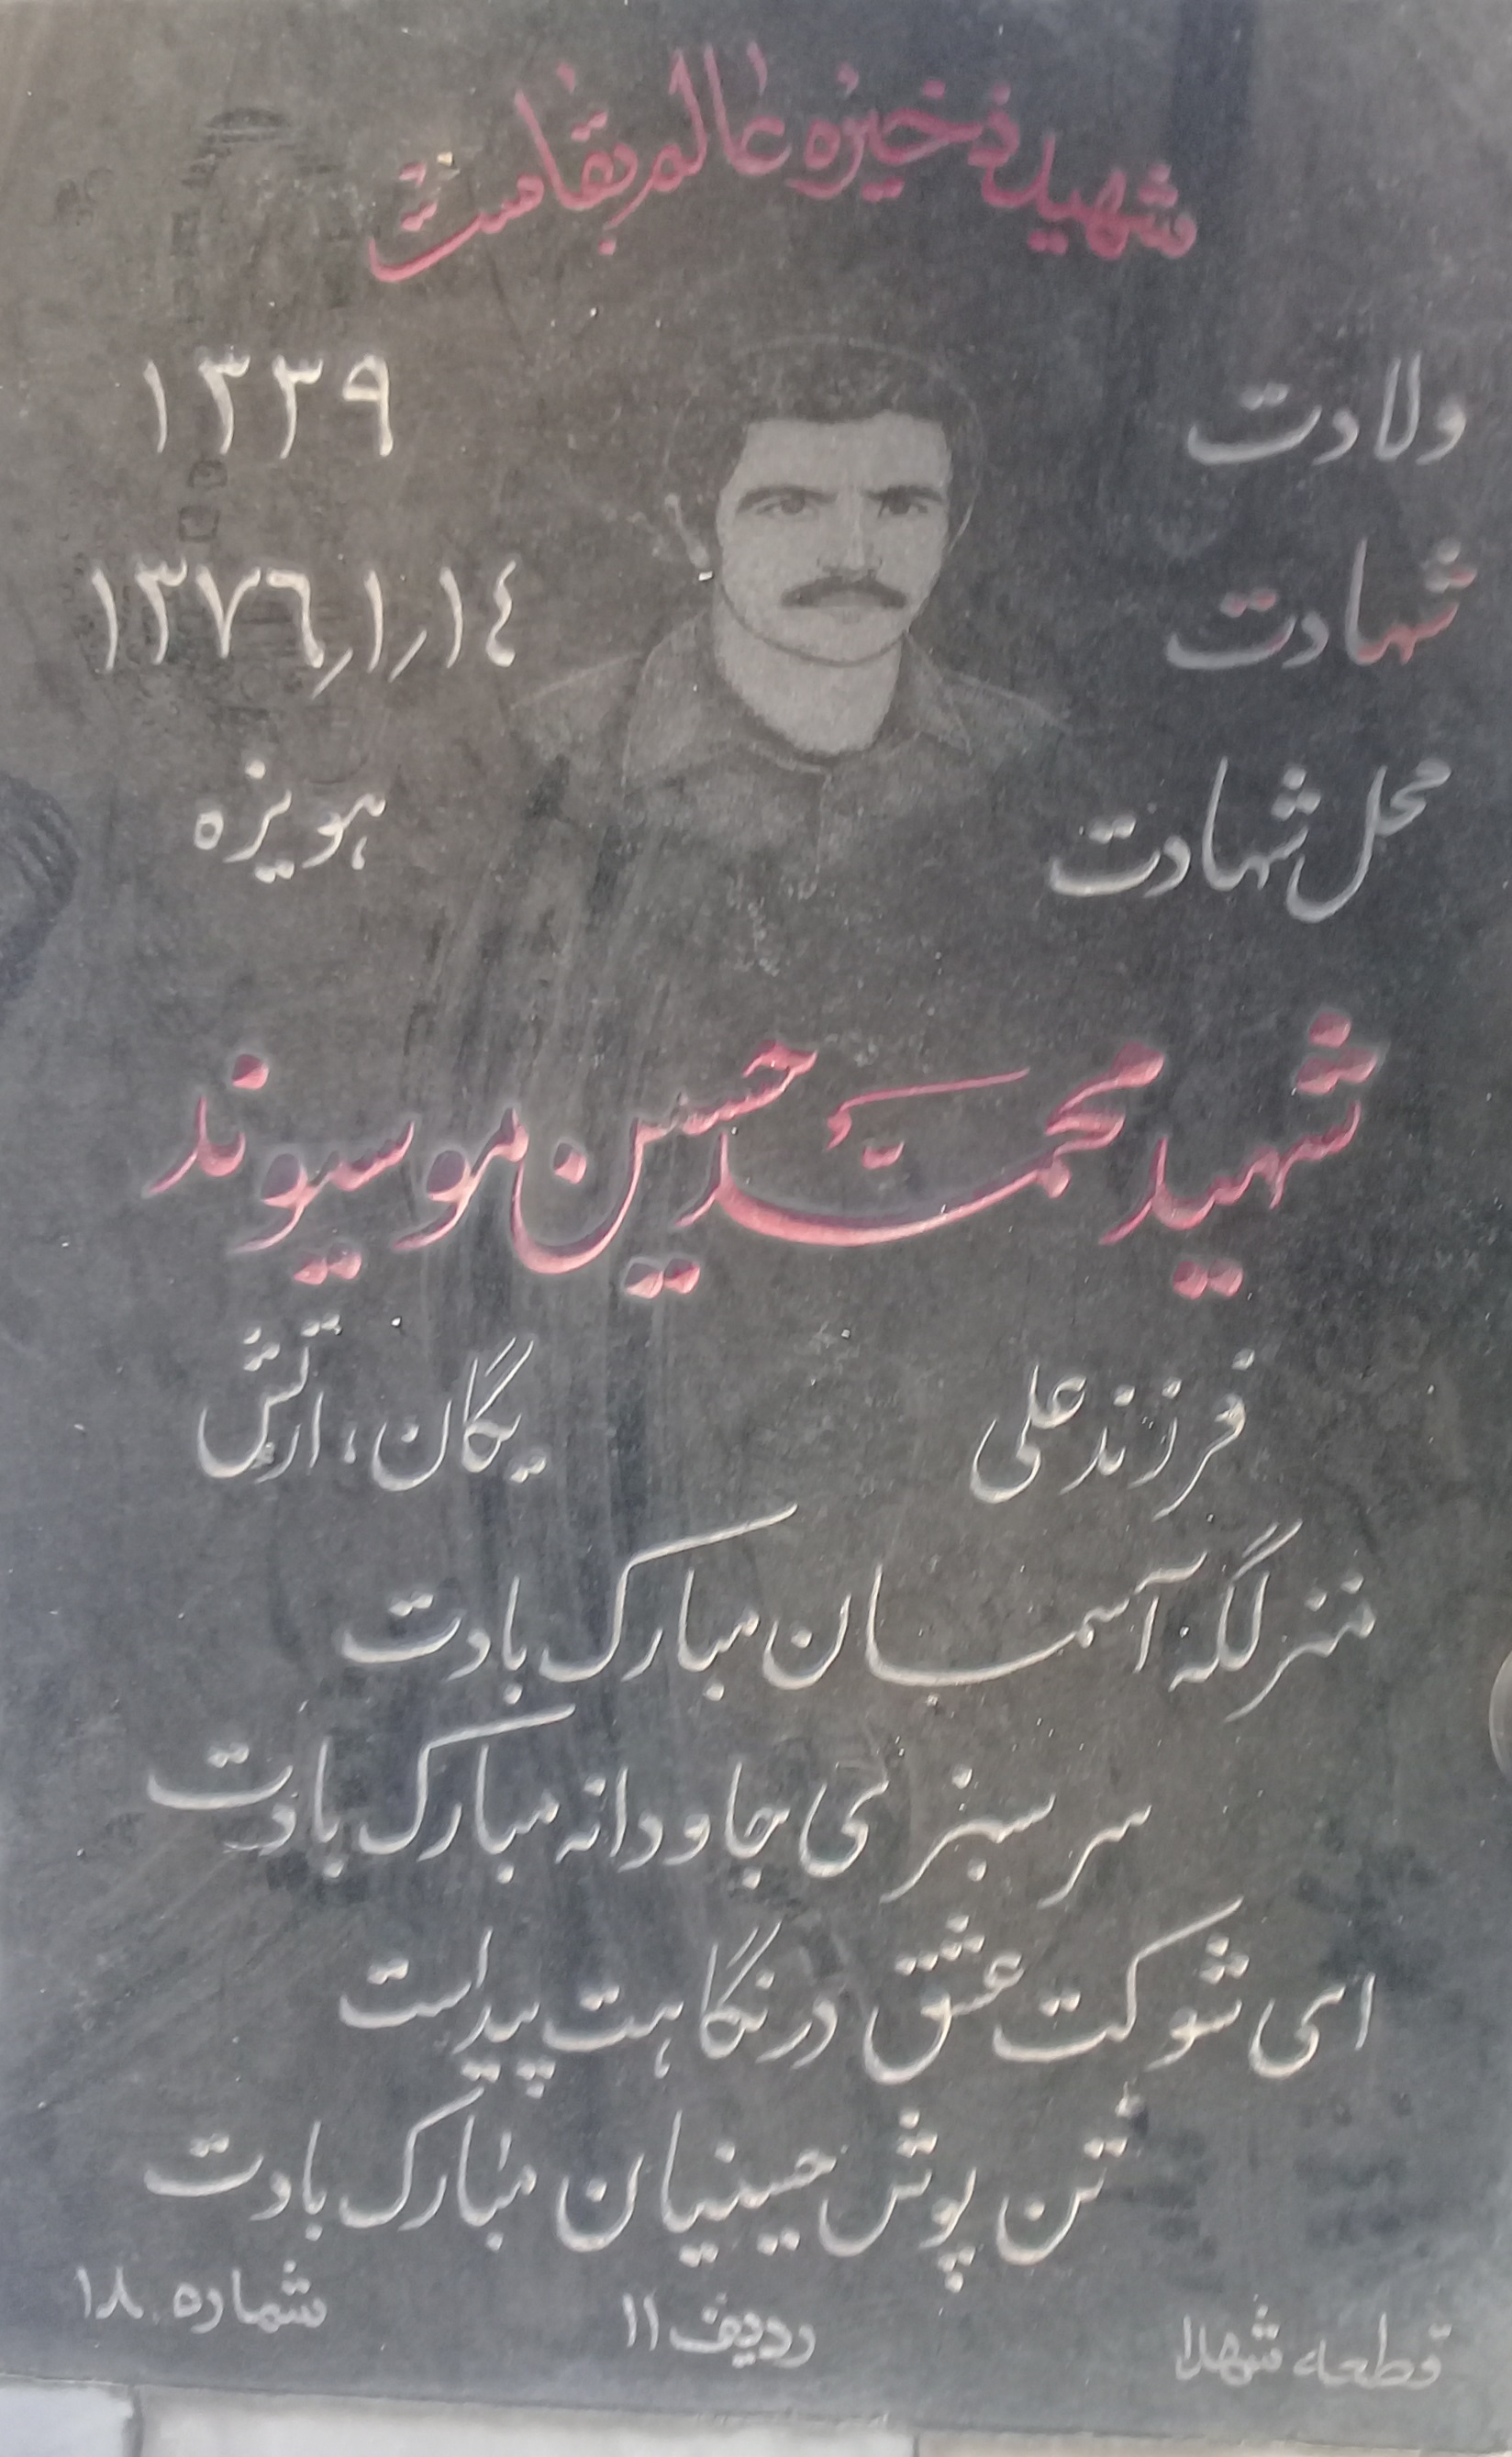 شهید ذخیره عالم بقاست
ولادت ١٣٣٩
شهادت ١٣٧٦٫١٫١٤
محل شهادت هویزه
شهید محمد حسین موسیوند
فرزند علی یگان، ارتش
منزلگه آسمان مبارک بادت
سرسبزی جاودانه مبارک بادت
ای شوکت عشق در نگاهت پیداست
تن پوش حسینیان مبارک بادت
قطعه شهدا ردیف ١١ شماره ١٨